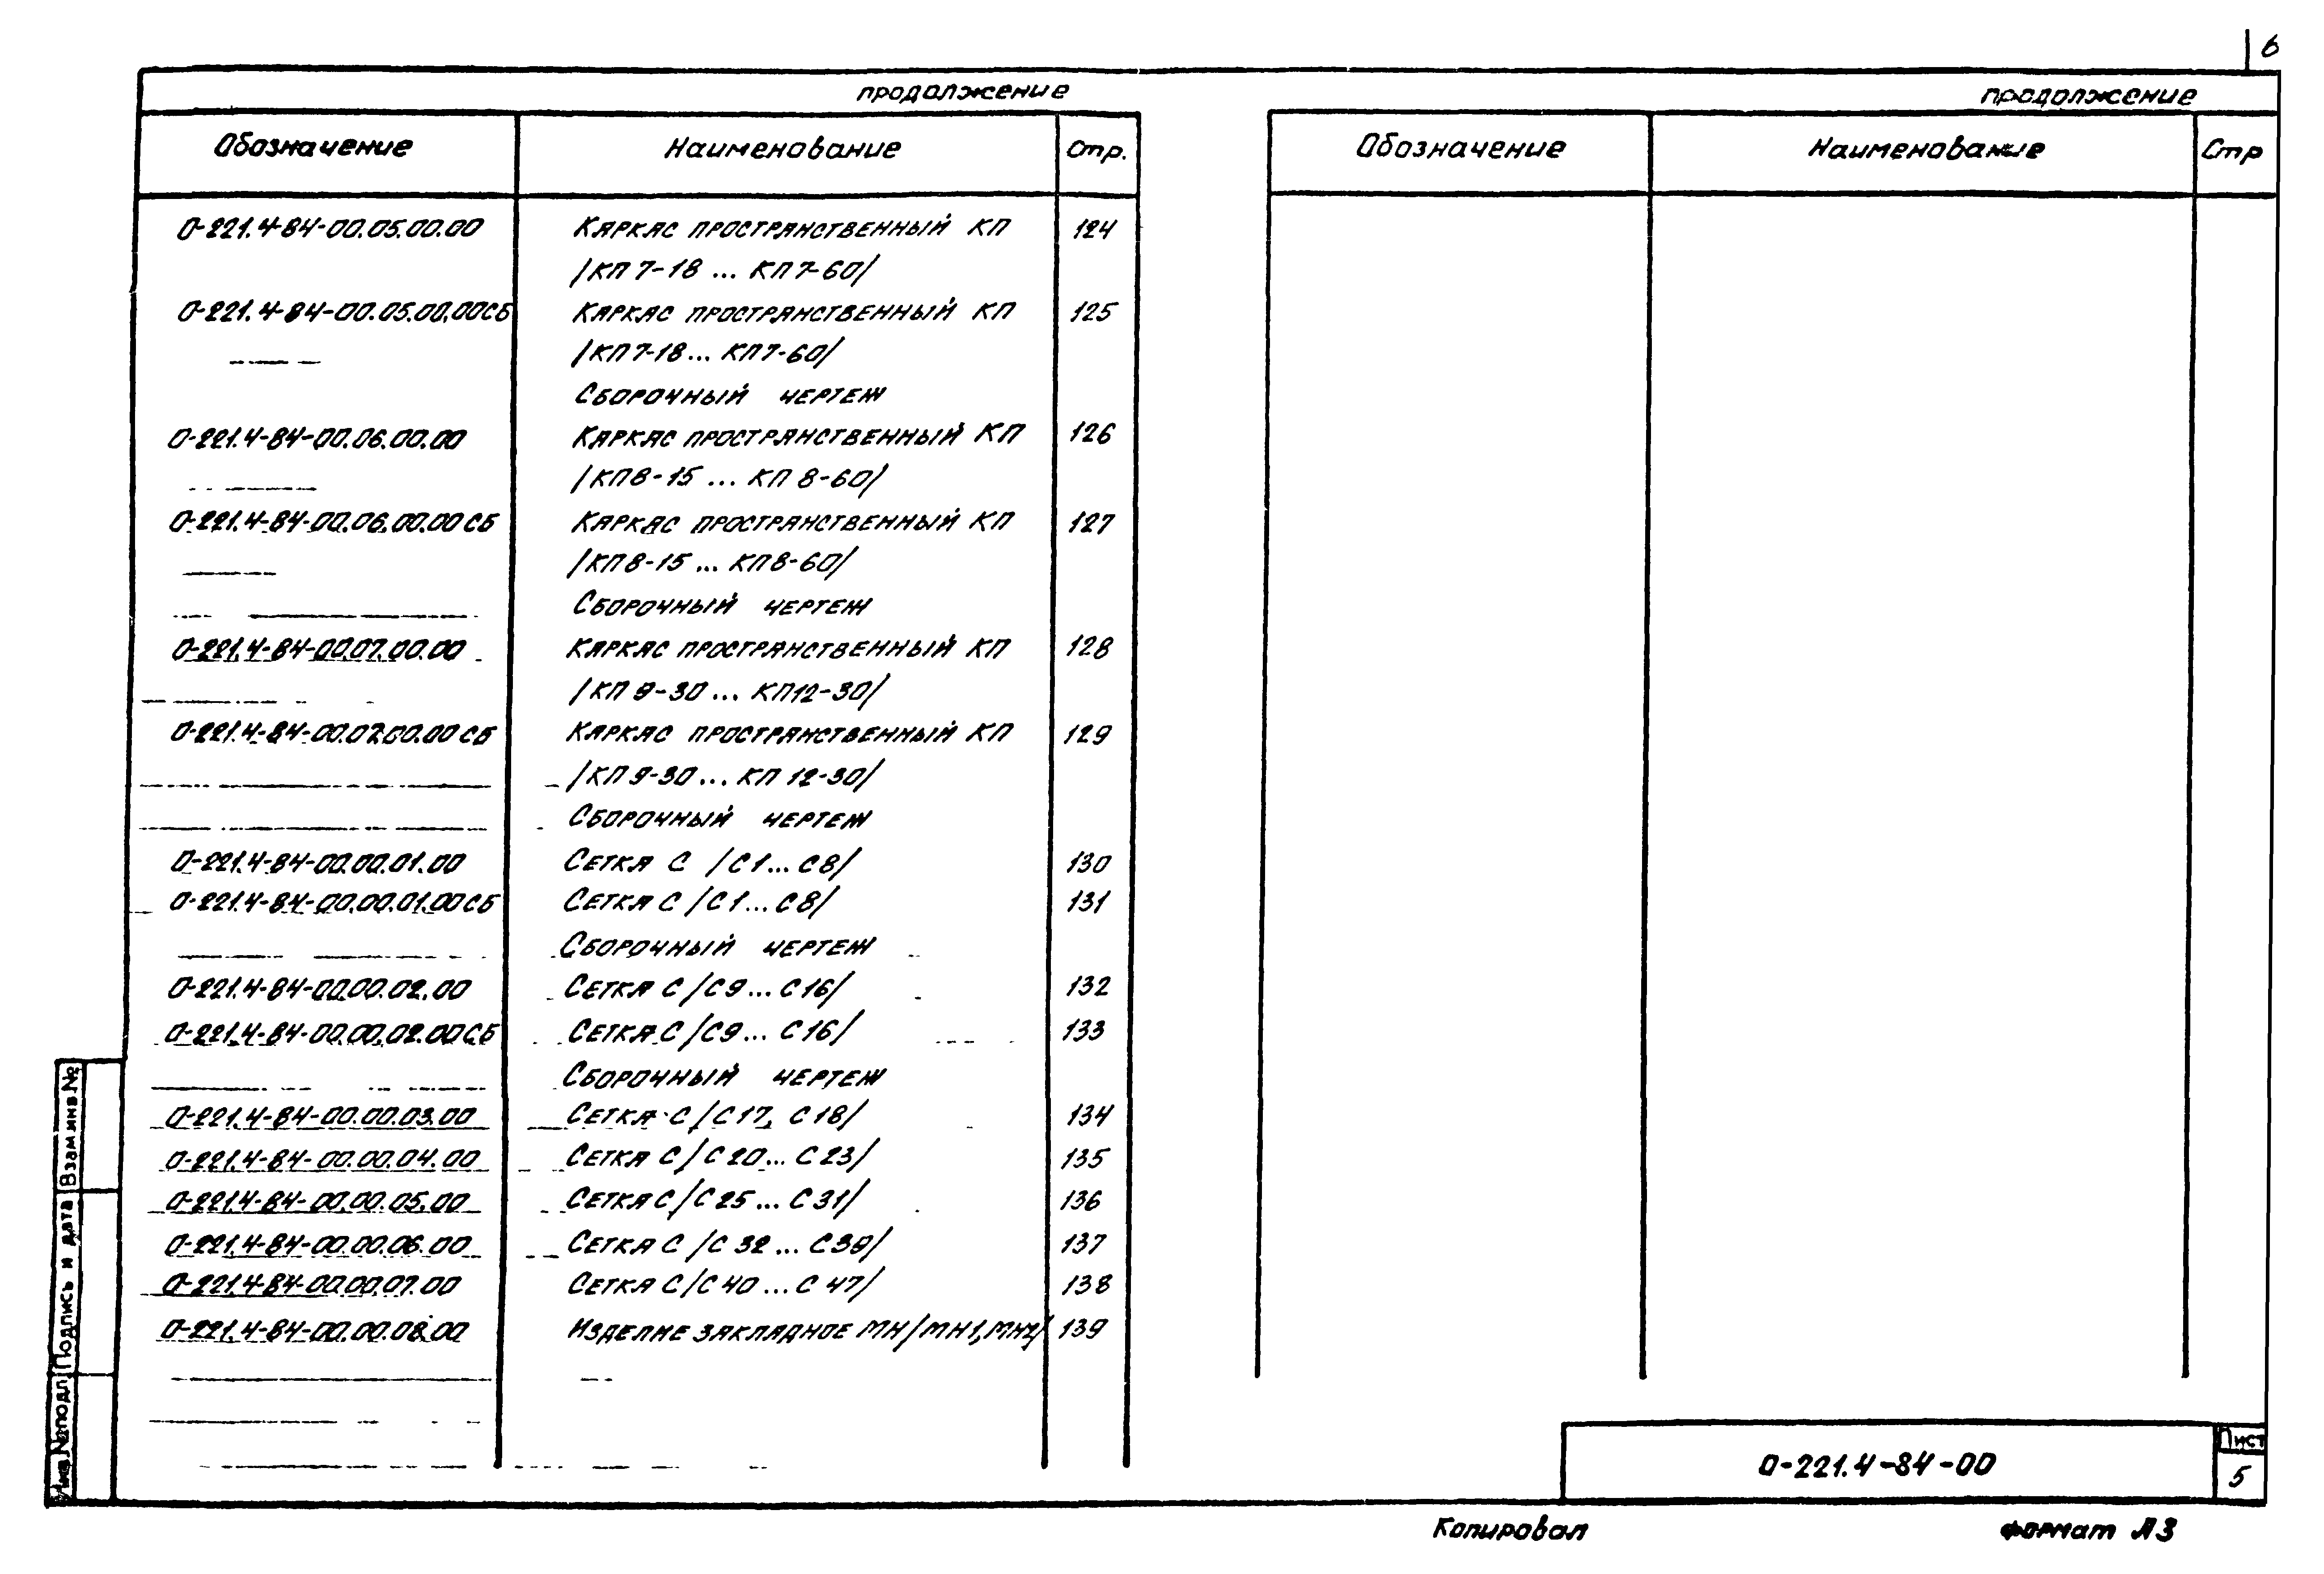 6
продолжение
Обозначение Наименование Стр.
0-221.4-84-00.05.00.00 Каркас пространственный КП 124
/КП 7-18 ... КП 7-60/
0-221.4-84-00.05.00.00СБ Каркас пространственный КП 125
/КП 7-18 ... КП 7-60/
Сборочный чертеж
0-221.4-84-00.06.00.00 Каркас пространственный КП 126
/КП8-15 ... КП 8-60/
0-221.4-84-00.06.00.00СБ Каркас пространственный КП 127
/КП8-15 ... КП8-60/
Сборочный чертеж
0-221.4-84-00.07.00.00 Каркас пространственный КП 128
/КП 9-30 ... КП12-30/
0-221.4-84-00.07.00.00СБ Каркас пространственный КП 129
/КП 9-30 ... КП 12-30/
Сборочный чертеж
0-221.4-84-00.00.01.00 Сетка С /С1 ... С8/ 130
0-221.4-84-00.00.01.00СБ Сетка С /С1 ... С8/ 131
Сборочный чертеж
0-221.4-84-00.00.02.00 Сетка С /С9 ... С16/ 132
0-221.4-84-00.00.02.00СБ Сетка С /С9 ... С16/ 133
Сборочный чертеж
0-221.4-84-00.00.03.00 Сетка С /С17, С18/ 134
0-221.4-84-00.00.04.00 Сетка С /С20 ... С23/ 135
0-221.4-84-00.00.05.00 Сетка С /С25 ... С31/ 136
0-221.4-84-00.00.06.00 Сетка С /С32 ... С39/ 137
0-221.4-84-00.00.07.00 Сетка С /С40 ... С47/ 138
0-221.4-84-00.00.08.00 Изделие закладное МН /МН1, МН2/ 139
продолжение
Обозначение Наименование Стр
Взам.инв.№
Подпись и дата
Инв.№подл
0-221.4-84-00
Лист
5
Копировал формат А3